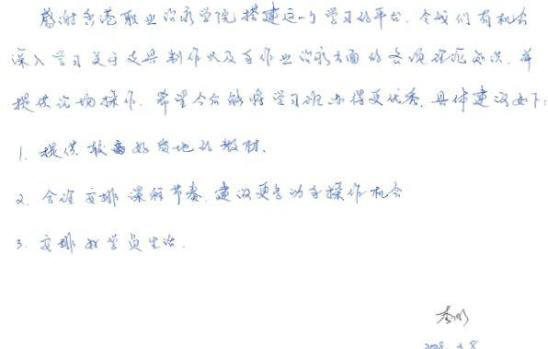 感谢香港职业治疗学院搭建这一个学习的平台，令我们有机会
深入学习关于支具制作以及手作业治疗方面的各项理论知识，并
提供实操操作，希望今后能将学习班办得更优秀，具体建议如下：
1. 提供较高的质地的教材.
2. 合理安排课程节奏，建议更多动手操作机会
3. 安排好学员生活.